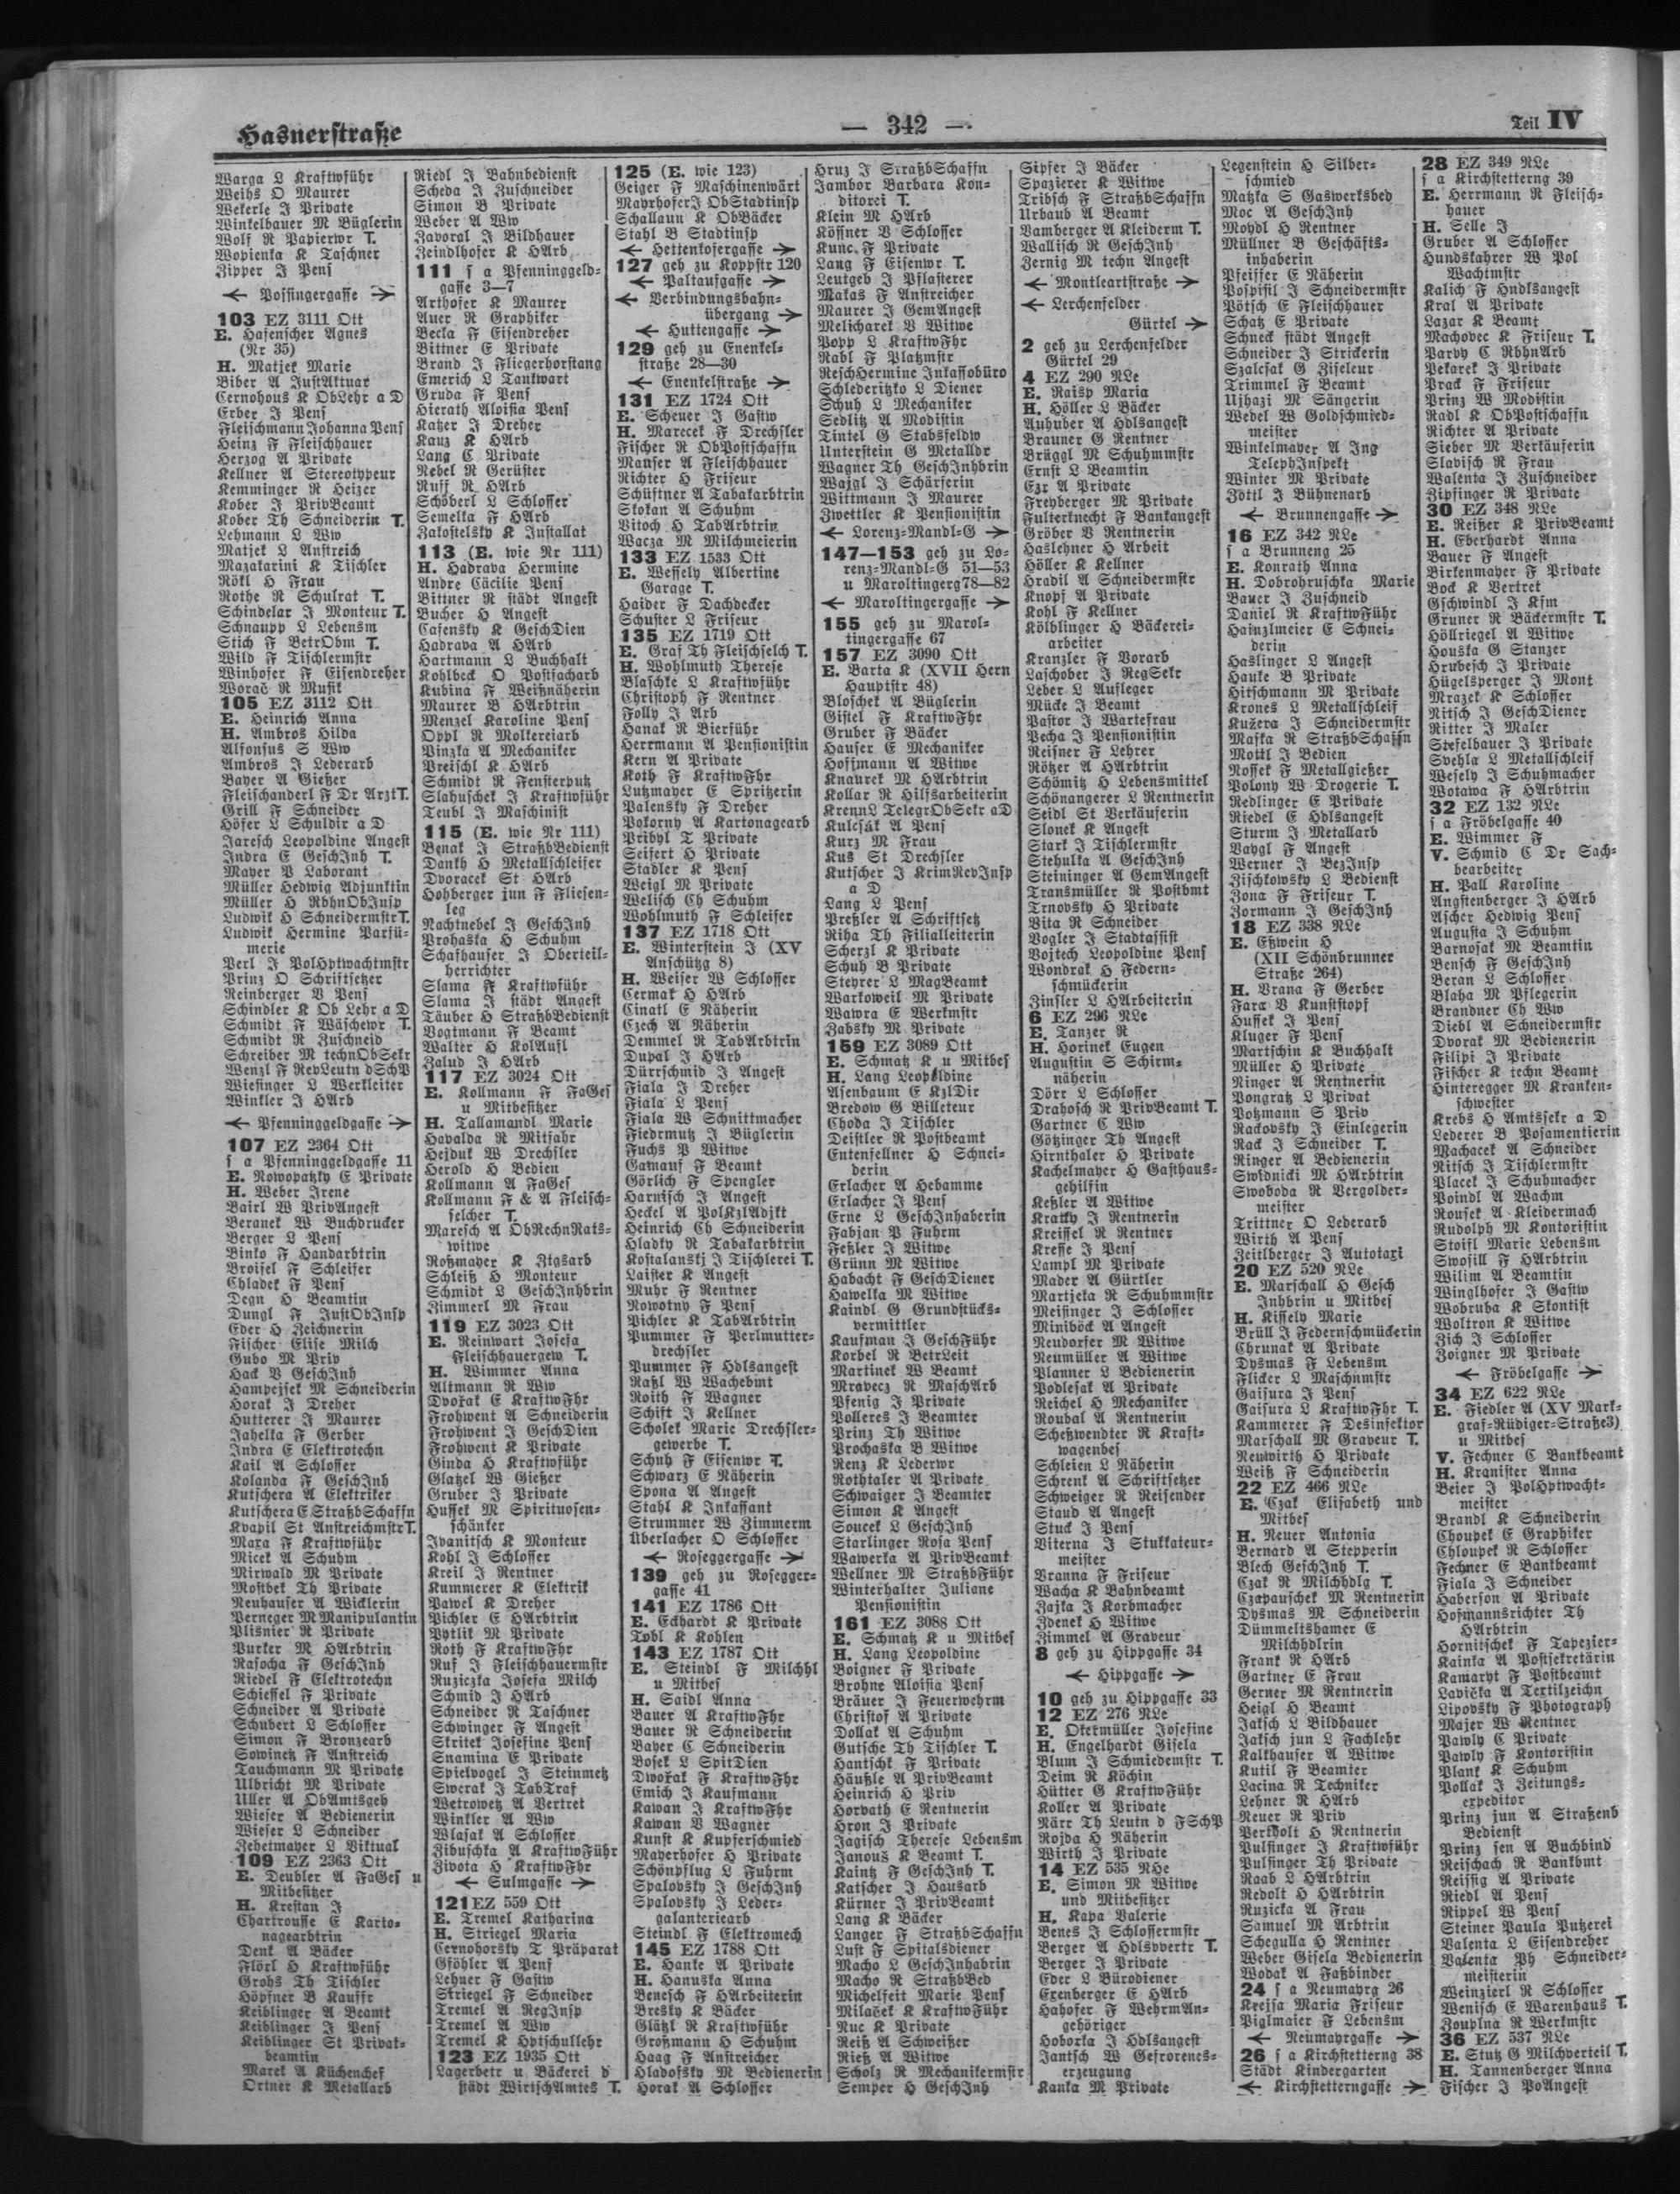 Hasnerstraße
— 342 —
Teil IV
Warga L Kraftwführ
Weihs O Maurer
Wekerle J Private
Winkelbauer M Büglerin
Wolf R Papierwr T.
Wopienka K Taschner
Zipper J Pens
← Possingergasse →
103 EZ 3111 Ott
E. Hasenscher Agnes
(Nr 35)
H. Matjek Marie
Biber A JustAktuar
Cernohous K ObLehr a D
Erber J Pens
Fleischmann Johanna Pens
Heinz F Fleischhauer
Herzog A Private
Kellner A Stereotypeur
Kemminger R Heizer
Kober J PrivBeamt
Kober Th Schneiderin T.
Lehmann L Ww
Matjek L Anstreich
Mazakarini K Tischler
Rökl H Frau
Rothe R Schulrat T.
Schindelar J Monteur T.
Schnaupp L Lebensm
Stich F BetrObm T.
Wild F Tischlermstr
Winhofer F Eisendreher
Worač R Musik
105 EZ 3112 Ott
E. Heinrich Anna
H. Ambros Hilda
Alfonsus S Ww
Ambros J Lederarb
Bayer A Gießer
Fleischanderl F Dr Arzt T.
Grill F Schneider
Höfer L Schuldir a D
Jaresch Leopoldine Angest
Indra E GeschInh T.
Mayer P Laborant
Müller Hedwig Adjunktin
Müller H RbhnObInsp
Ludwik H Schneidermstr T.
Ludwik Hermine Parfü-
merie
Perl J PolHptwachtmstr
Prinz O Schriftsetzer
Reinberger V Pens
Schindler K Ob Lehr a D
Schmidt F Wäschewr T.
Schmidt R Zuschneid
Schreiber M technObSekr
Wenzl F RevLeutn dSchP
Wiesinger L Werkleiter
Winkler J HArb
← Pfenninggeldgasse →
107 EZ 2364 Ott
s a Pfenninggeldgasse 11
E. Nowopatzky E Private
H. Weber Irene
Bairl W PrivAngest
Beranek W Buchdrucker
Berger L Pens
Binko F Handarbtrin
Broisel F Schleifer
Chladek F Pens
Degn H Beamtin
Dungl F JustObInsp
Eder H Zeichnerin
Fischer Elise Milch
Gubo M Priv
Hack V GeschInh
Hampejsek M Schneiderin
Horak J Dreher
Hutterer J Maurer
Jahelka F Gerber
Indra E Elektrotechn
Kail A Schlosser
Kolanda F GeschInh
Kutschera A Elektriker
Kutschera E StraßbSchaffn
Kvapil St Anstreichmstr T.
Maxa F Kraftwführ
Micek A Schuhm
Mirwald M Private
Mostbek Th Private
Neuhauser A Wicklerin
Perneger M Manipulantin
Plisnier R Private
Purker M HArbtrin
Rasocha F GeschInh
Riedel F Elektrotechn
Schiessel F Private
Schneider A Private
Schubert L Schlosser
Simon F Bronzearb
Sowinetz F Anstreich
Tauchmann M Private
Ulbricht M Private
Uller A ObAmtsgeh
Wieser A Bedienerin
Wieser L Schneider
Zehetmayer L Viktual
109 EZ 2363 Ott
E. Deubler A FaGes u
Mitbesitzer
H. Krestan J
Chartrousse E Karto-
nagearbtrin
Denk A Bäcker
Flörl H Kraftwführ
Grohs Th Tischler
Höpfner B Kauffr
Keiblinger A Beamt
Keiblinger J Pens
Keiblinger St Privat-
beamtin
Marek A Küchenchef
Ortner K Metallarb
Riedl J Bahnbedienst
Scheda J Zuschneider
Simon B Private
Weber A Ww
Zavoral J Bildhauer
Zeindlhofer K HArb
111 s a Pfenninggeld-
gasse 3—7
Arthofer K Maurer
Auer R Graphiker
Becla F Eisendreher
Bittner E Private
Brand J Fliegerhorstang
Emerich L Tankwart
Gruda F Pens
Hierath Aloisia Pens
Katzer J Dreher
Kauz K HArb
Lang C Private
Nebel R Gerüster
Ruff R HArb
Schöberl L Schlosser
Semelka F HArb
Zakostelsky K Installat
113 (E. wie Nr 111)
H. Hadrava Hermine
Andre Cäcilie Pens
Bittner R städt Angest
Bucher H Angest
Casensky K GeschDien
Hadrava A HArb
Hartmann L Buchhalt
Kohlbeck O Postfacharb
Kubina F Weißnäherin
Maurer B HArbtrin
Menzel Karoline Pens
Oppl R Molkereiarb
Pinzka A Mechaniker
Preischl K HArb
Schmidt R Fensterputz
Slabuschek J Kraftwführ
Teubl J Maschinist
115 (E. wie Nr 111)
Benak J StraßbBedienst
Dankh H Metallschleifer
Dvoracek St HArb
Hohberger jun F Fliesen-
leg
Nachtnebel J GeschInh
Prohaska H Schuhm
Schafhauser J Oberteil-
herrichter
Slama F Kraftwführ
Slama J städt Angest
Täuber H StraßbBedienst
Vogtmann F Beamt
Walter H KolAufl
Zalud J HArb
117 EZ 3024 Ott
E. Kollmann F FaGes
u Mitbesitzer
H. Tallamandl Marie
Havalda R Mitfahr
Hejduk W Drechsler
Herold H Bedien
Kollmann A FaGes
Kollmann F & A Fleisch-
selcher T.
Maresch A ObRechnRats-
witwe
Roßmayer K Zigsarb
Schleiß H Monteur
Schmidt L GeschInhbrin
Zimmerl M Frau
119 EZ 3023 Ott
E. Reinwart Josefa
Fleischhauergew T.
H. Wimmer Anna
Altmann R Ww
Dvořak E KraftwFhr
Frohwent A Schneiderin
Frohwent J GeschDien
Frohwent K Private
Ginda H Kraftwführ
Glatzel W Gießer
Gruber J Private
Hussek M Spirituosen-
schänker
Ivanitsch K Monteur
Kohl J Schlosser
Kreil J Rentner
Kummerer K Elektrik
Pawel K Dreher
Pichler E HArbtrin
Pytlik M Private
Roth F KraftwFhr
Ruf J Fleischhauermstr
Ruziczka Josefa Milch
Schmid J HArb
Schneider R Taschner
Schwinger F Angest
Skritek Josefine Pens
Snamina E Private
Spielvogel J Steinmetz
Swerak J TabTraf
Wetrowetz A Vertret
Winkler A Ww
Wlasak A Schlosser
Zibuschka A KraftwFühr
Zivota H KraftwFhr
← Sulmgasse →
121 EZ 559 Ott
E. Tremel Katharina
H. Striegel Maria
Cernohorsky T Präparat
Gföhler A Pens
Lehner F Gastw
Striegel F Schneider
Tremel A RegInsp
Tremel A Ww
Tremel K Hptschullehr
123 EZ 1935 Ott
Lagerbetr u Bäckerei d
städt WirtschAmtes T.
125 (E. wie 123)
Geiger F Maschinenwärt
Mayrhofer J ObStadtinsp
Schallaun K ObBäcker
Stahl B Stadtinsp
← Hettenkofergasse →
127 geh zu Koppstr 120
← Paltaufgasse →
← Verbindungsbahn-
übergang →
← Huttengasse →
129 geh zu Enenkel-
straße 28—30
← Enenkelstraße →
131 EZ 1724 Ott
E. Scheuer J Gastw
H. Marecek F Drechsler
Fischer R ObPostschaffn
Mauser A Fleischhauer
Richter H Friseur
Schüftner A Tabakarbtrin
Skokan A Schuhm
Vitoch H TabArbtrin
Wacza M Milchmeierin
133 EZ 1533 Ott
E. Wessely Albertine
Garage T.
Haider F Dachdecker
Schuster L Friseur
135 EZ 1719 Ott
E. Graf Th Fleischselch T.
H. Wohlmuth Therese
Blaschke L Kraftwführ
Christoph F Rentner
Folly J Arb
Hanak R Bierführ
Herrmann A Pensionistin
Kern A Private
Koth F KraftwFhr
Lutzmayer E Spritzerin
Palensky F Dreher
Pokorny A Kartonagearb
Pribyl T Private
Seifert H Private
Stadler K Pens
Weigl M Private
Welisch Ch Schuhm
Wohlmuth F Schleifer
137 EZ 1718 Ott
E. Winterstein J (XV
Anschützg 8)
H. Weiser W Schlosser
Cermak H HArb
Cinatl E Näherin
Czech A Näherin
Demmel R TabArbtrin
Dupal J HArb
Dürrschmid J Angest
Fiala J Dreher
Fiala L Pens
Fiala W Schnittmacher
Fiedrmutz J Büglerin
Fuchs P Witwe
Gamauf F Beamt
Görlich F Spengler
Harnisch J Angest
Heckel A PolKzlAdjkt
Heinrich Ch Schneiderin
Hladky R Tabakarbtrin
Kostalanskj J Tischlerei T.
Laister K Angest
Muhr F Rentner
Nowotny F Pens
Pichler K TabArbtrin
Pummer F Perlmutter-
drechsler
Pummer F Hdlsangest
Raßl W Wachebmt
Roith F Wagner
Schift J Kellner
Scholek Marie Drechsler-
gewerbe T.
Schuh F Eisenwr T.
Schwarz E Näherin
Spona A Angest
Stahl K Inkassant
Strummer W Zimmerm
Überlacher O Schlosser
← Roseggergasse →
139 geh zu Rosegger-
gasse 41
141 EZ 1786 Ott
E. Eckhardt K Private
Tobl K Kohlen
143 EZ 1787 Ott
E. Steindl F Milchhl
u Mitbes
H. Saidl Anna
Bauer A KraftwFhr
Bauer R Schneiderin
Bayer C Schneiderin
Bosek L SpitDien
Dwořak F KraftwFhr
Emich J Kaufmann
Kawan J KraftwFhr
Kawan V Wagner
Kunst K Kupferschmied
Mayerhofer H Private
Schönpflug L Fuhrm
Spalovsky J GeschInh
Spalovsky J Leder-
galanteriearb
Steindl F Elektromech
145 EZ 1788 Ott
E. Hanke A Private
H. Hanuska Anna
Benesch F HArbeiterin
Bresky K Bäcker
Glätzl R Kraftwführ
Großmann H Schuhm
Haag F Anstreicher
Hladofsky M Bedienerin
Horak A Schlosser
Hruz J StraßbSchaffn
Jambor Barbara Kon-
ditorei T.
Klein M HArb
Kössner V Schlosser
Kunc F Private
Lang F Eisenwr T.
Leutgeb J Pflasterer
Makas F Anstreicher
Maurer J GemAngest
Melicharek V Witwe
Popp L KraftwFhr
Rabl F Platzmstr
Resch Hermine Inkassobüro
Schlederitzko L Diener
Schuh L Mechaniker
Sedlitz A Modistin
Tintel G Stabsfeldw
Unterstein G Metalldr
Wagner Th GeschInhbrin
Wajgl J Schärferin
Wittmann J Maurer
Zwettler K Pensionistin
← Lorenz-Mandl-G →
147—153 geh zu Lo-
renz-Mandl-G 51—53
u Maroltingerg 78—82
← Maroltingergasse →
155 geh zu Marol-
tingergasse 67
157 EZ 3090 Ott
E. Barta K (XVII Hern
Hauptstr 48)
Bloschek A Büglerin
Gistel F KraftwFhr
Gruber F Bäcker
Hauser E Mechaniker
Hoffmann A Witwe
Knaurek M HArbtrin
Kollar R Hilfsarbeiterin
Krenn L TelegrObSekr a D
Kulcsák A Pens
Kurz M Frau
Kus St Drechsler
Kutscher J KrimRevInsp
a D
Lang L Pens
Preßler A Schriftsetz
Riha Th Filialleiterin
Scherzl K Private
Schuh B Private
Steyrer L MagBeamt
Warkoweil M Private
Wawra E Werkmstr
Zabsky M Private
159 EZ 3089 Ott
E. Schmatz K u Mitbes
H. Lang Leopoldine
Asenbaum E KzlDir
Bredow G Billeteur
Choda J Tischler
Deistler R Postbeamt
Entenfellner H Schnei-
derin
Erlacher A Hebamme
Erlacher J Pens
Erne L GeschInhaberin
Fabjan P Fuhrm
Feßler J Witwe
Grünn M Witwe
Habacht F GeschDiener
Hawelka M Witwe
Kaindl G Grundstücks-
vermittler
Kaufman J GeschFühr
Korbel R BetrLeit
Martinek W Beamt
Mravecz R MaschArb
Pfenig J Private
Polleres J Beamter
Prinz Th Witwe
Prochaska B Witwe
Renz K Lederwr
Rothtaler A Private
Schwaiger J Beamter
Simon K Angest
Soucek L GeschInh
Starlinger Rosa Pens
Wawerka A PrivBeamt
Wellner M StraßbFühr
Winterhalter Juliane
Pensionistin
161 EZ 3088 Ott
E. Schmatz K u Mitbes
H. Lang Leopoldine
Boigner F Private
Brohne Aloisia Pens
Bräuer J Feuerwehrm
Christof A Private
Dollak A Schuhm
Gutsche Th Tischler T.
Hantschk F Private
Häußle A PrivBeamt
Heinrich H Priv
Horvath E Rentnerin
Hron J Private
Jagisch Therese Lebensm
Janous K Beamt T.
Kaintz F GeschInh T.
Katscher J Hausarb
Kürner J PrivBeamt
Lang K Bäcker
Langer F StraßbSchaffn
Lust F Spitalsdiener
Macho L GeschInhabrin
Macho R StraßbBed
Michelfeit Marie Pens
Milaček K KraftwFühr
Ruc K Private
Reiß A Schweißer
Rieß A Witwe
Scholz R Mechanikermstr
Semper H GeschInh
Sipfer J Bäcker
Spazierer K Witwe
Tribsch F StraßbSchaffn
Urbaub A Beamt
Vamberger A Kleiderm T.
Wallisch R GeschInh
Zernig M techn Angest
← Montleartstraße →
← Lerchenfelder
Gürtel →
2 geh zu Lerchenfelder
Gürtel 29
4 EZ 290 NLe
E. Raisp Maria
H. Höller L Bäcker
Auhuber A Hdlsangest
Brauner G Rentner
Brüggl M Schuhmmstr
Ernst L Beamtin
Ezr A Private
Freyberger M Private
Fulterknecht F Bankangest
Gröber V Rentnerin
Haslehner H Arbeit
Höller K Kellner
Hradil A Schneidermstr
Knopf A Private
Kohl F Kellner
Kölblinger H Bäckerei-
arbeiter
Kranzler F Vorarb
Laschober J RegSekr
Leber L Aufleger
Mücke J Beamt
Pastor J Wartefrau
Pecha J Pensionistin
Reisner F Lehrer
Rötzer A HArbtrin
Schömitz H Lebensmittel
Schönangerer L Rentnerin
Seidl St Verkäuferin
Slonek K Angest
Stark J Tischlermstr
Stehulka A GeschInh
Steininger A GemAngest
Transmüller R Postbmt
Trnovsky H Private
Vita R Schneider
Vogler J Stadtassist
Vojtech Leopoldine Pens
Wondrak H Federn-
schmückerin
Zinsler L HArbeiterin
6 EZ 296 NLe
E. Tanzer R
H. Horinek Eugen
Augustin S Schirm-
näherin
Dörr L Schlosser
Drahosch R PrivBeamt T.
Gartner C Ww
Götzinger Th Angest
Hirnthaler H Private
Kachelmayer H Gasthaus-
gehilfin
Keßler A Witwe
Kratky J Rentnerin
Kreissel R Rentner
Kresse J Pens
Lampl M Private
Mader A Gürtler
Martjeka R Schuhmmstr
Meisinger J Schlosser
Miniböck A Angest
Neudorfer M Witwe
Neumüller A Witwe
Planner L Bedienerin
Podlesak A Private
Reichel H Mechaniker
Roubal A Rentnerin
Scheßwendter R Kraft-
wagenbes
Schleien L Näherin
Schrenk A Schriftsetzer
Schweiger R Reisender
Staud A Angest
Stuck J Pens
Viterna J Stukkateur-
meister
Vranna F Friseur
Wacha K Bahnbeamt
Zajka J Korbmacher
Zdenek H Witwe
Zimmel A Graveur
8 geh zu Hippgasse 34
← Hippgasse →
10 geh zu Hippgasse 33
12 EZ 276 NLe
E. Oketmüller Josefine
H. Engelhardt Gisela
Blum J Schmiedemstr T.
Deim R Köchin
Hütter G KraftwFühr
Koller A Private
Närr Th Leutn d FSchP
Rojda H Näherin
Wirth J Private
14 EZ 535 NHe
E. Simon M Witwe
und Mitbesitzer
H. Kapa Valerie
Benes J Schlossermstr
Berger A Hdlsvertr T.
Berger J Private
Eder L Bürodiener
Exenberger E HArb
Hahofer F WehrmAn-
gehöriger
Hoborka J Hdlsangest
Jantsch W Gefrorenes-
erzeugung
Kanka M Private
Legenstein H Silber-
schmied
Matzka S Gaswerksbed
Moc A GeschInh
Moydl H Rentner
Müllner B Geschäfts-
inhaberin
Pfeiffer E Näherin
Pospisil J Schneidermstr
Pötsch E Fleischhauer
Schatz E Private
Schneck städt Angest
Schneider J Strickerin
Szalcsak G Ziseleur
Trimmel F Beamt
Ujhazi M Sängerin
Wedel W Goldschmied-
meister
Winkelmayer A Ing
TelephInspekt
Winter M Private
Zöttl J Bühnenarb
← Brunnengasse →
16 EZ 342 NLe
s a Brunneng 25
E. Konrath Anna
H. Dobrohruschka Marie
Bauer J Zuschneid
Daniel R KraftwFühr
Hainzlmeier E Schnei-
derin
Haslinger L Angest
Hauke B Private
Hitschmann M Private
Krones L Metallschleif
Kužera J Schneidermstr
Maska R StraßbSchaffn
Mottl J Bedien
Nossek F Metallgießer
Polony W Drogerie T.
Redlinger E Private
Riedel E Hdlsangest
Sturm J Metallarb
Vaygl F Angest
Werner J BezInsp
Zischkowsky L Bedienst
Zona F Friseur T.
Zormann J GeschInh
18 EZ 338 NLe
E. Eßwein H
(XII Schönbrunner
Straße 264)
H. Vrana F Gerber
Fara V Kunststopf
Hussek J Pens
Kluger F Pens
Martschin K Buchhalt
Müller H Private
Ninger A Rentnerin
Pongratz L Privat
Potzmann S Priv
Rackovsky J Einlegerin
Rack J Schneider T.
Ringer A Bedienerin
Swidnicki M HArbtrin
Swoboda R Vergolder-
meister
Trittner O Lederarb
Wirth A Pens
Zeitlberger J Autotaxi
20 EZ 520 NLe
E. Marschall H Gesch
Inhbrin u Mitbes
H. Kissely Marie
Brüll J Federnschmückerin
Chrunak A Private
Dysmas F Lebensm
Flicker L Maschnmstr
Gaisura J Pens
Gaisura L KraftwFhr T.
Kammerer F Desinfektor
Marschall M Graveur T.
Neuwirth H Private
Weiß F Schneiderin
22 EZ 466 NLe
E. Czak Elisabeth und
Mitbes
H. Neuer Antonia
Bernard A Stepperin
Blech GeschInh T.
Czak R Milchhdlg T.
Czapauschek M Rentnerin
Dysmas M Schneiderin
Dümmeltshamer E
Milchhdlrin
Frank R HArb
Gartner E Frau
Gerner M Rentnerin
Heigl H Beamt
Jaksch L Bildhauer
Jaksch jun L Fachlehr
Kalkhauser A Witwe
Kutil F Beamter
Lacina R Techniker
Lehner R HArb
Neuer R Priv
Pertholt H Rentnerin
Pulsinger J Kraftwführ
Pulsinger Th Private
Raab L HArbtrin
Redolt H HArbtrin
Ruzicka A Frau
Samuel M Arbtrin
Schegulla H Rentner
Weber Gisela Bedienerin
Wodak A Faßbinder
24 s a Neumayrg 26
Krejsa Maria Friseur
Piglmaier F Lebensm
← Neumayrgasse →
26 s a Kirchstetterng 38
Städt Kindergarten
← Kirchstetterngasse →
28 EZ 349 NLe
s a Kirchstetterng 39
E. Herrmann R Fleisch-
hauer
H. Selle J
Gruber A Schlosser
Hundskahrer W Pol
Wachtmstr
Kalich F Hndlsangest
Kral A Private
Lazar K Beamt
Machovec K Friseur T.
Parby C RbhnArb
Pekarek J Private
Prack F Friseur
Prinz W Modistin
Radl K ObPostschaffn
Richter A Private
Sieber M Verkäuferin
Slavisch R Frau
Walenta J Zuschneider
Zipfinger R Private
30 EZ 348 NLe
E. Reißer K PrivBeamt
H. Eberhardt Anna
Bauer F Angest
Birkenmayer F Private
Bock K Vertret
Gschwindl J Ksm
Gruner R Bäckermstr T.
Höllriegel A Witwe
Houska G Stanzer
Hrubesch J Private
Hügelsperger J Mont
Mrazek K Schlosser
Nitsch J GeschDiener
Ritter J Maler
Stefelbauer J Private
Svehla L Metallschleif
Wesely J Schuhmacher
Wotawa F HArbtrin
32 EZ 132 NLe
s a Fröbelgasse 40
E. Wimmer F
V. Schmid C Dr Sach-
bearbeiter
H. Pall Karoline
Angstenberger J HArb
Ascher Hedwig Pens
Augusta J Schuhm
Barnosak M Beamtin
Bensch F GeschInh
Beran L Schlosser
Blaha M Pflegerin
Brandner Ch Ww
Diebl A Schneidermstr
Dvorak M Bedienerin
Filipi J Private
Fischer K techn Beamt
Hinteregger M Kranken-
schwester
Krebs H Amtssekr a D
Lederer B Posamentierin
Machacek A Schneider
Nitsch J Tischlermstr
Placek J Schuhmacher
Poindl A Wachm
Rousek A Kleidermach
Rudolph M Kontoristin
Stoisl Marie Lebensm
Swosill F HArbtrin
Wilim A Beamtin
Winglhofer J Gastw
Wobruba K Skontist
Woltron K Witwe
Zich J Schlosser
Zoigner M Private
← Fröbelgasse →
34 EZ 622 NLe
E. Fiedler A (XV Mark-
graf-Rüdiger-Straße 3)
u Mitbes
V. Fechner C Bankbeamt
H. Kranister Anna
Beier J PolHptwacht-
meister
Brandl K Schneiderin
Choupek E Graphiker
Chloupek R Schlosser
Fechner E Bankbeamt
Fiala J Schneider
Haberson A Private
Hofmannsrichter Th
HArbtrin
Hornitschek F Tapezier-
Kainka A Postsekretärin
Kamaryt F Postbeamt
Lavička A Textilzeichn
Lipovsky F Photograph
Majer W Rentner
Pawly C Private
Pawly F Kontoristin
Plank K Schuhm
Pollak J Zeitungs-
expeditor
Prinz jun A Straßenb
Bedienst
Prinz sen A Buchbind
Reischach R Bankbmt
Reissig A Private
Riedl A Pens
Rippel W Pens
Steiner Paula Putzerei
Valenta L Eisendreher
Valenta Ph Schneider-
meisterin
Weinzierl R Schlosser
Wenisch E Warenhaus T.
Zouplna R Werkmstr
36 EZ 537 NLe
E. Stutz G Milchverteil T.
H. Tannenberger Anna
Fischer J PoAngest